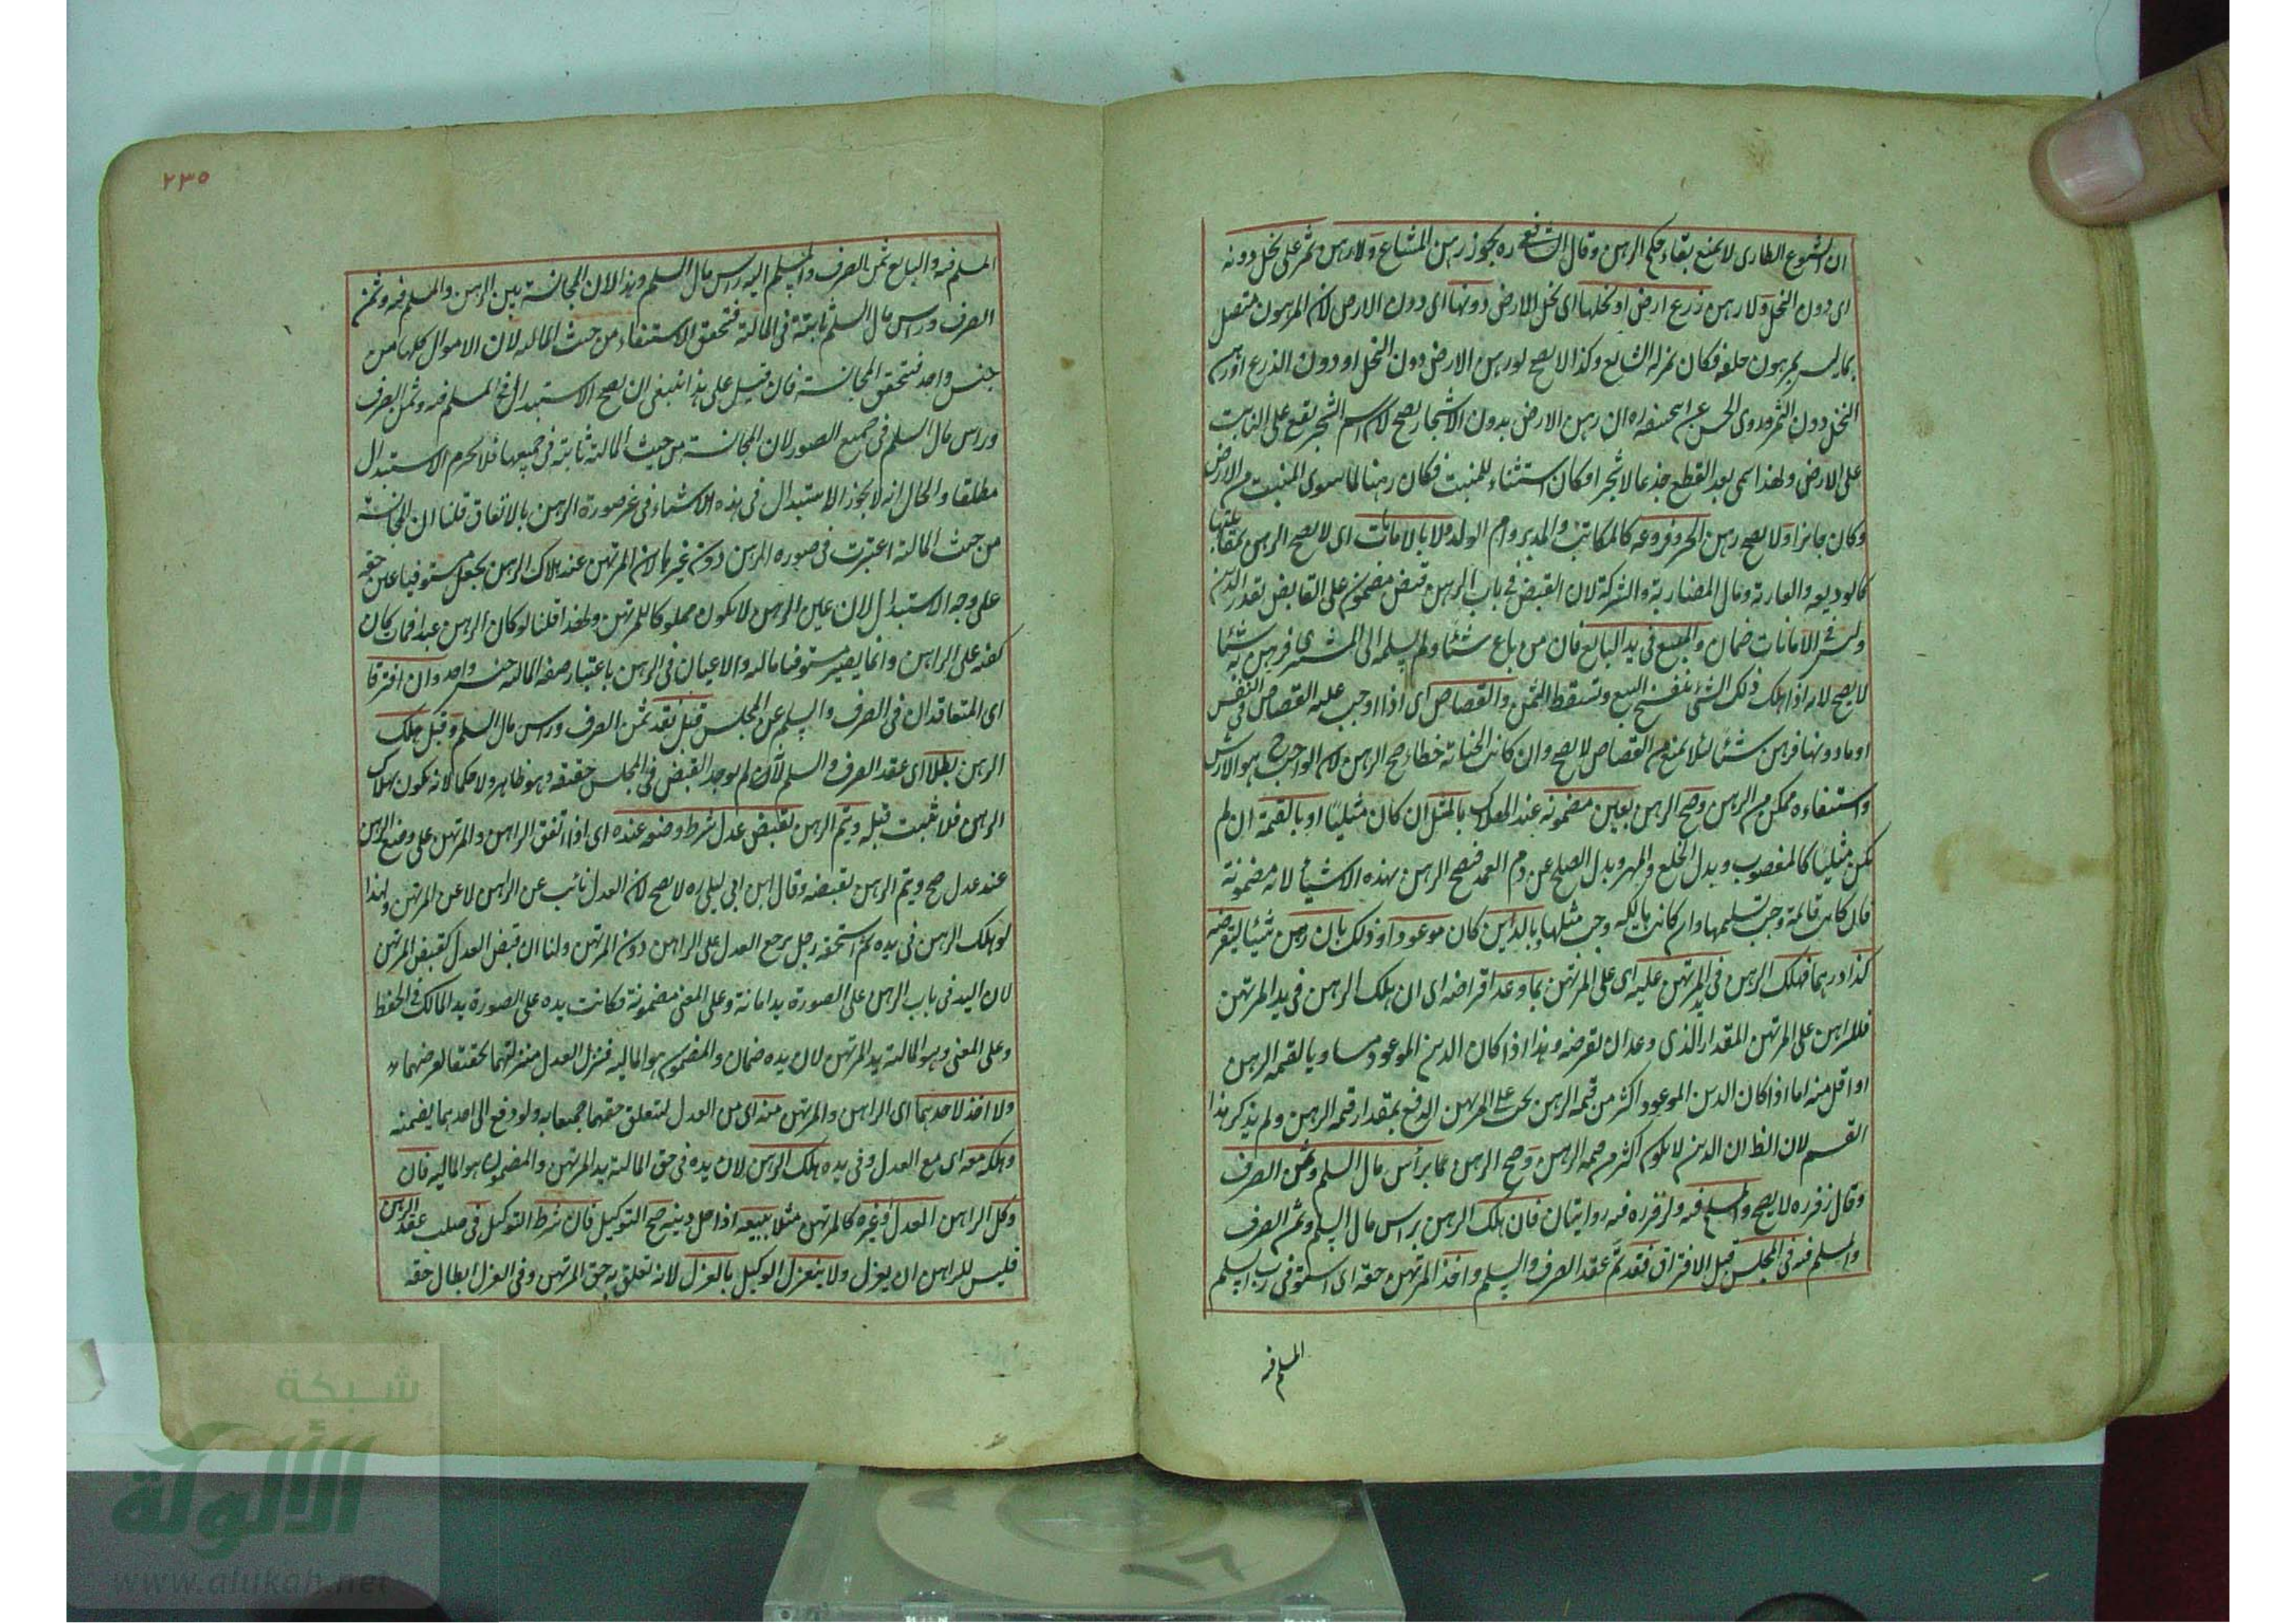 ان الشيوع الطارى لا يمنع بقاء حكم الرهن وقال الشافعى ره يجوز رهن المشاع ولا رهن ثمر على نخل دونه
اى دون النخل ولا رهن زرع ارض او نخلها اى نخل الارض دونها اى دون الارض لان المرهون متصل
بما ليس بمرهون خلقه فكان بمنزلة الشايع وكذا لا يصح لو رهن الارض دون النخل او دون الزرع او رهن
النخل دون الثمر وروى الحسن عن ابيحنيفه ره ان رهن الارض بدون الاشجار يصح لان اسم الشجر يقع على النابت
على الارض ولهذا سمى بعد القطع جذعا لا شجرا فكان استثناء للمنبت فكان رهنا لما سوى المنبت من الارض
وكان جائزا ولا يصح رهن الحر وفروعه كالمكاتب والمدبر وام الولد ولا بالامانات اى لا يصح الرهن بمقابلتها
كالوديعه والعارية ومال المضاربة والشركة لان القبض فى باب الرهن قبض مضمون على القابض بقدر الدين
وليس فى الامانات ضمان والمبيع فى يد البايع فان من باع شئيا ولم يسلمه الى المشترى فرهن به شئيا
لا يصح لانه اذا هلك ذلك الشئ ينفسخ البيع وتسقط الثمن والقصاص اى اذا اوجب عليه القصاص فى النفس
او ما دونها فرهن شئيا لئلا يمنع من القصاص لا يصح وان كانت الجناية خطاء صح الرهن لان الواجب ح هو الارش
واستيفاءه ممكن من الرهن وصح الرهن بعين مضمونه عند الهلاك بالمثل ان كان مثليا او بالقيمة ان لم
يكن مثليا كالمغصوب وبدل الخلع والمهر وبدل الصلح عن دم العمد فيصح الرهن بهذه الاشياء لانه مضمونة
فان كانت قائمة وجب تسليمها وان كانت هالكه وجب مثلها وبالدين كان موعودا وذلك بان رهن شيئا ليقرضه
كذا درهما فهلك الرهن فى يد المرتهن عليه اى على المرتهن بما وعد اقراضه اى ان هلك الرهن فى يد المرتهن
فللراهن على المرتهن المقدار الذى وعد ان يقرضه وهذا اذا كان الدين الموعود مساويا لقيمه الرهن
او اقل منه اما اذا كان الدين الموعود اكثر من قيمه الرهن يجب على المرتهن الدفع بمقدار قيمه الرهن ولم يذكر هذا
القسم لان الظ ان الدين لا يكون اكثر من قيمه الرهن وصح الرهن عما برأس مال السلم وثمن الصرف
وقال زفر ره لا يصح والمسلم فيه ولزفر ره فيه روايتان فان هلك الرهن براس مال السلم وثمن الصرف
والمسلم فيه فى المجلس قبل الافتراق فقد تم عقد الصرف والسلم واخذ المرتهن حقه اى استوفى رب السلم
المسلم فيه
٢٣٥
المسلم فيه والبايع ثمن الصرف والمسلم اليه راس مال السلم وهذا لان المجانسة بين الرهن والمسلم فيه وثمن
الصرف وراس مال السلم ثابتة فى المالية فتحقق الاستيفاء من حيث المالية لان الاموال كلها من
جنس واحد فتحقق المجانسة فان قيل على هذا ينبغى ان يصح الاستبدال فى المسلم فيه وثمن الصرف
وراس مال السلم فى جميع الصور لان المجانسة من حيث المالية ثابتة فى جميعها فلا يحرم الاستبدال
مطلقا والحال انه لا يجوز الاستبدال فى هذه الاشياء فى غير صورة الرهن بالاتفاق قلنا ان المجانسة
من حيث المالية اعتبرت فى صوره الرهن دون غيرها لان المرتهن عند هلاك الرهن يجعل مستوفيا عين حقه
على وجه الاستبدال لان عين الرهن لا يكون مملوكا للمرتهن ولهذا قلنا لو كان الرهن عبدا فمات كان
كفنه على الراهن وانما يصير مستوفيا ماله والاعيان فى الرهن باعتبار صفه المالية جنس واحد وان افترقا
اى المتعاقدان فى الصرف والسلم عن المجلس قبل نقد ثمن الصرف وراس مال السلم وقبل هلك
الرهن بطلا اى عقد الصرف والسلم لان لم يوجد القبض فى المجلس حقيقه وهو ظاهر ولا حكما لانه يكون بهلاك
الرهن فلا يثبت قبله ويتم الرهن بقبض عدل شرط وضعه عنده اى اذا اتفق الراهن والمرتهن على وضع الرهن
عند عدل صح ويتم الرهن بقبضه وقال ابن ابى ليلى ره لا يصح لان العدل نائب عن الراهن لا عن المرتهن ولهذا
لو هلك الرهن فى يده ثم استحقه رجل يرجع العدل على الراهن دون المرتهن ولنا ان قبض العدل كقبض المرتهن
لان اليد فى باب الرهن على الصورة يد امانة وعلى المعنى مضمونة فكانت يده على الصورة يد المالك فى الحفظ
وعلى المعنى وهو المالية يد المرتهن لان يده ضمان والمضمون هو الماليه فنزل العدل منزلتهما تحقيقا لغرضهما
ولا اخذ لاحدهما اى الراهن والمرتهن منه اى من العدل لتعلق حقهما جميعا به ولو دفع الى احدهما يضمنه
وهلكه معه اى مع العدل وفى يده هلك الرهن لان يده فى حق المالية يد المرتهن والمضمون هو الماليه فان
وكل الراهن العدل او غيره كالمرتهن مثلا ببيعه اذا حل دينه صح التوكيل فان شرط التوكيل فى صلب عقد الرهن
فليس للراهن ان يعزل ولا ينعزل الوكيل بالعزل لانه تعلق به حق المرتهن وفى العزل ابطال حقه
شبكة
الألوكة
www.alukah.net